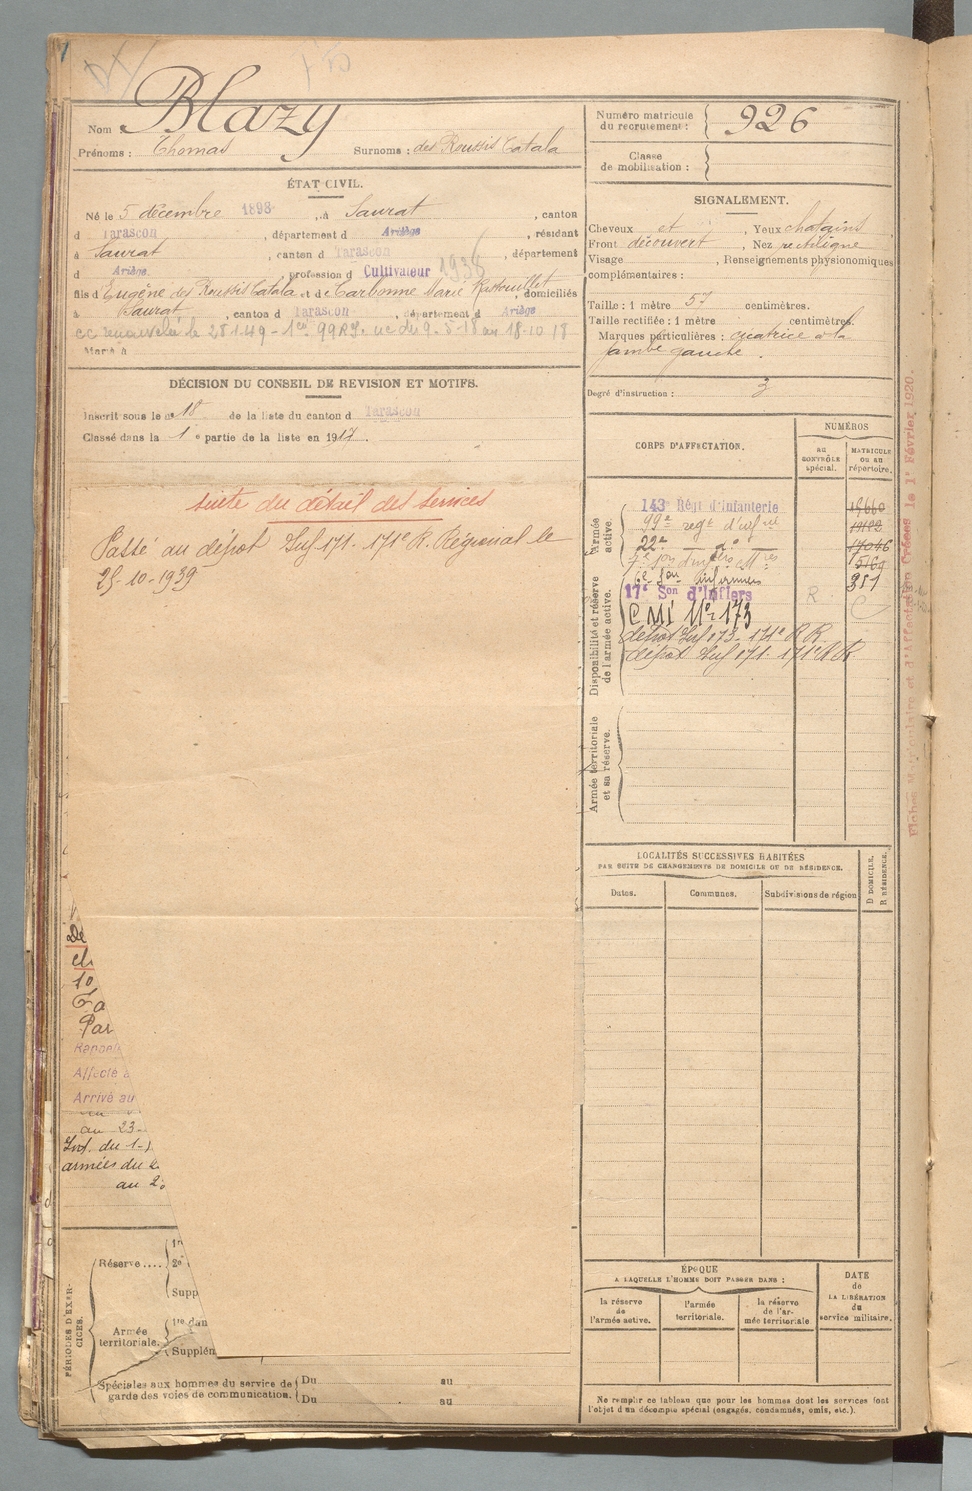 Nom Blazy
Prénoms : Thomas Surnoms : des Roussis Catala
Numéro matricule
du recrutement : 926
Classe
de mobilisation :
ÉTAT CIVIL.
Né le 5 décembre 1898, à Saurat, canton
d Tarascon, département d Ariège, résidant
à Saurat, canton d Tarascon, département
d Ariège, profession d Cultivateur 1938
fils d'Eugène des Roussis Catala et de Carbonne Marie Rastouillet, domiciliés
à Saurat, canton d Tarascon, département d Ariège
cc renouvelée le 28.1.49 - 1 99 RI. uc du 9-5-18 au 18-10 18
Marié à
DÉCISION DU CONSEIL DE REVISION ET MOTIFS.
Inscrit sous le n° 18 de la liste du canton d Tarascon
Classé dans la 1e partie de la liste en 1917.
suite du détail des services
Passé au dépot Inf 171 - 171e R. Régional le
25-10-1939
De
ch
10
Fa
Par
Rappelé
Affecté à
Arrivé au
au 23-
Int. du 1-
armées du 2
au 2
PÉRIODES D'EXERCICES.
Réserve ....
2e
Supp
Armée
territoriale.
1re dan
Supplém
Spéciales aux hommes du service de
garde des voies de communication.
Du au
Du au
SIGNALEMENT.
Cheveux et, Yeux chatains,
Front découvert, Nez rectiligne
Visage , Renseignements physionomiques
complémentaires :
Taille : 1 mètre 57 centimètres.
Taille rectifiée : 1 mètre centimètres.
Marques particulières : cicatrice à la
jambe gauche.
Degré d'instruction : 3
CORPS D'AFFECTATION.
NUMÉROS
AU
CONTRÔLE
spécial.
MATRICULE
OU AU
répertoire.
Armée
active.
143e Régt d'Infanterie 19660
99e regt d'inf rie
22e do 17046
5169
Son infirmiers 351
Disponibilité et réserve
de l'armée active.
17e Son d'Infiers R
CMI No 173
dépot Inf 173 - 171e R R
dépot Inf 171. 171e R R.
Armée territoriale
et sa réserve.
LOCALITÉS SUCCESSIVES HABITÉES
PAR SUITE DE CHANGEMENTS DE DOMICILE OU DE RÉSIDENCE.
D DOMICILE.
R RÉSIDENCE.
Dates. Communes. Subdivisions de région
ÉPOQUE
A LAQUELLE L'HOMME DOIT PASSER DANS :
la réserve
de
l'armée active.
l'armée
territoriale.
la réserve
de l'ar-
mée territoriale
DATE
de
LA LIBÉRATION
du
service militaire.
Ne remplir ce tableau que pour les hommes dont les services font
l'objet d'un décompte spécial (engagés, condamnés, omis, etc.).
Fiches Matriculaire et d'Affectation Créées le 1er Février 1920.